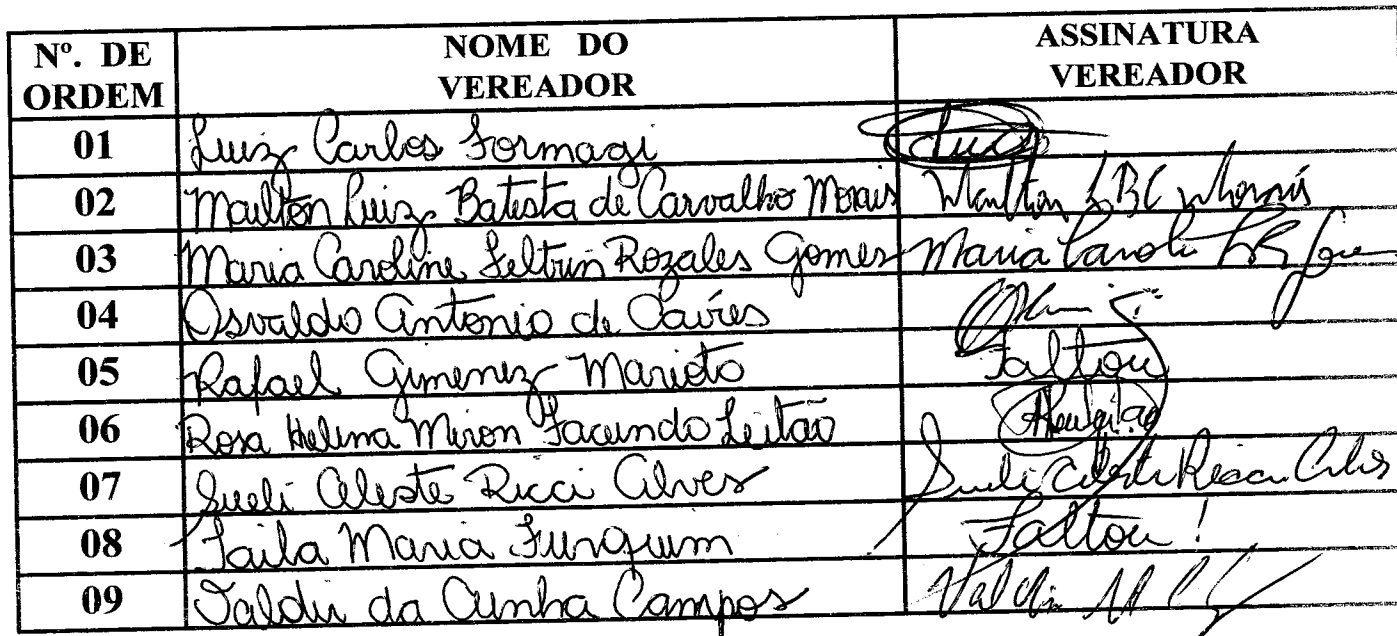 Nº. DE ORDEM NOME DO VEREADOR ASSINATURA VEREADOR
01 Luiz Carlos Formagi Luiz
02 Mailton Luiz Batista de Carvalho Morais Mailton LBC Morais
03 Maria Caroline Feltrin Rozales Gomes Maria Caroli
04 Osvaldo Antonio de Caires
05 Rafael Gimenez Marioto Faltou
06 Rosa Helena Miron Facundo Leitão
07 Sueli Celeste Ricci Alves Sueli Celeste Ricci Alves
08 Taila Maria Furquim Faltou!
09 Valdir da Cunha Campos Valdir